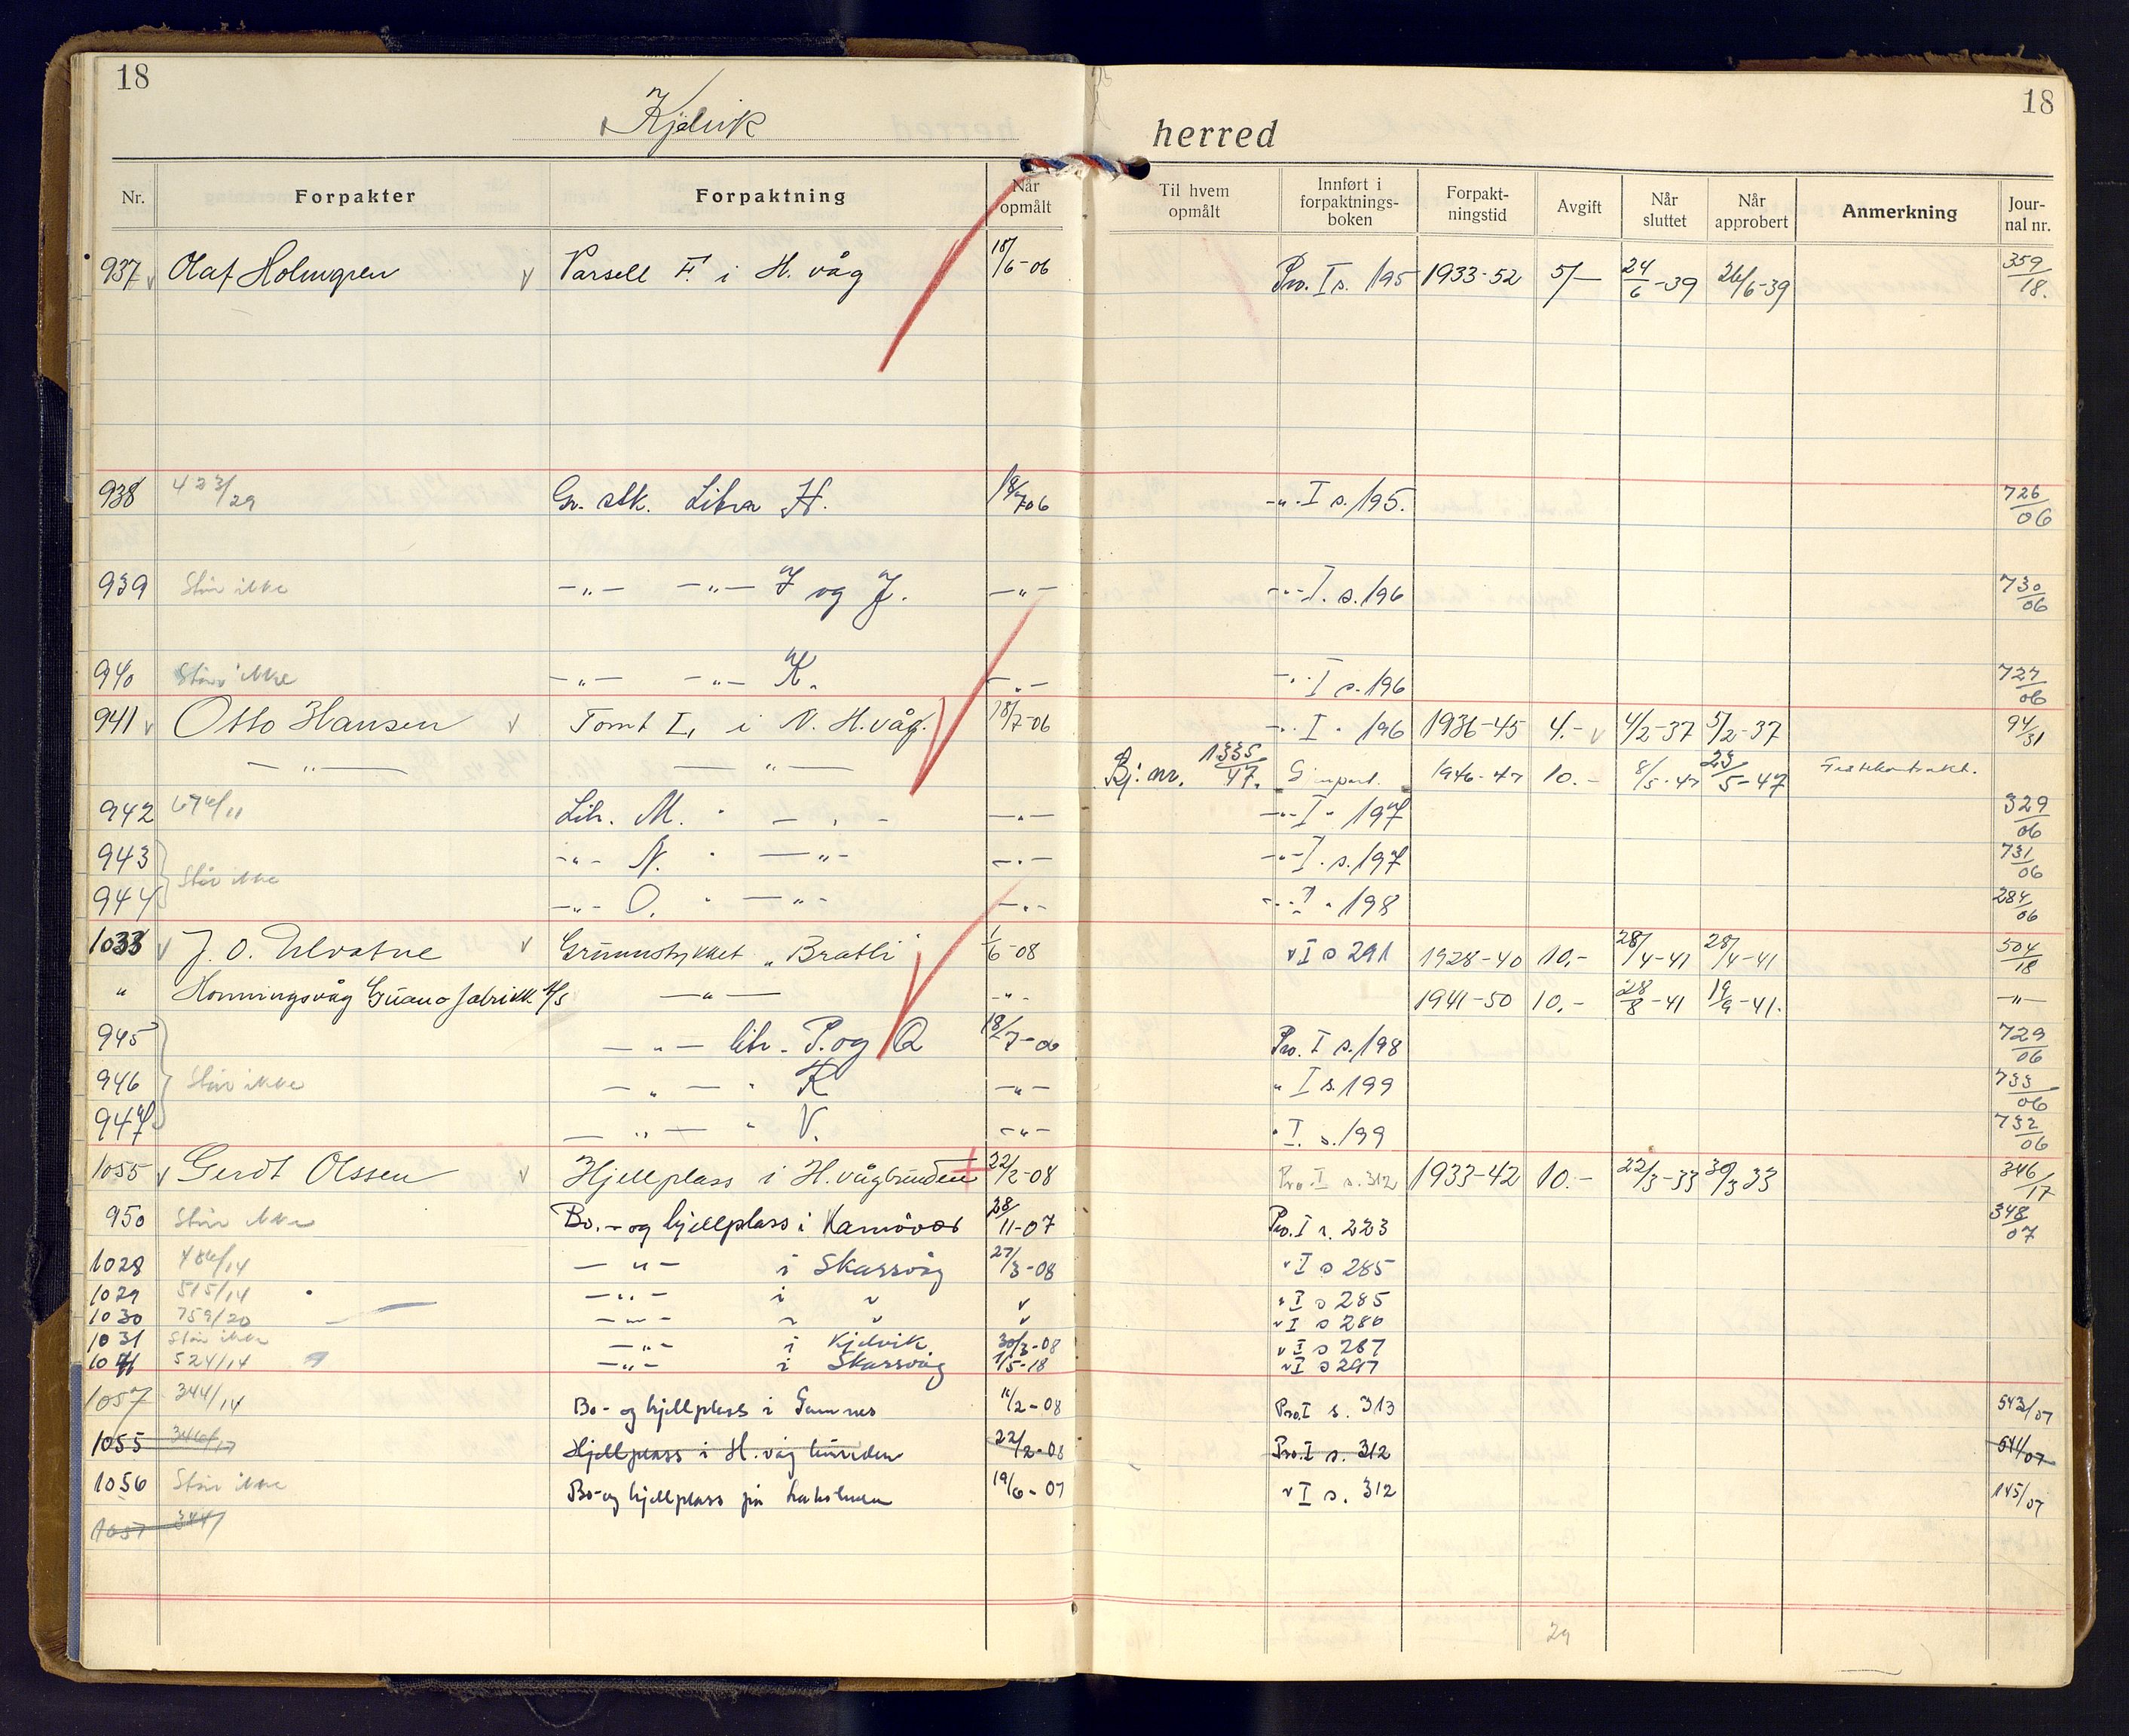 18
Kjelvik herred
18
Nr. Forpakter Forpaktning Når opmålt Til hvem opmålt Innført i forpaktnings-boken Forpakt-ningstid Avgift Når sluttet Når approbert Anmerkning Jour-nal nr.
937 v Olaf Holmgren v Parsell F. i H. våg 18/6-06 Pro. I s. 195 1933-52 5/— 24/6-39 26/6-39 359/18.
938 423/29 Gr. stk. Litra H. 18/7 06 -"- I s. 195. 726/06
939 Står ikke —"— —"— I og J. —"— -"- I. s. 196 730/06
940 Står ikke —"— —"— K. —"— -"- I s. 196 727/06
941 v Otto Hansen v Tomt L, i N. H.våg. 18/7-06 -"- I " 196 1936-45 4.- v 4/2-37 5/2-37 94/31
—"— —"— Bj. nr. 1335/47. 1946-47 10.- 8/5-47 23/5-47 Festekontrakt.
942 674/11 Litr. M. " —"— —"— -"- I " 197 329/06
943 } Står ikke -"- N. " —"— —"— -"- I. s. 197 731/06
944 -"- O. " —"— —"— -"- I " 198 284/06
1033 v J. O. Ulvatne v Grunnstykket "Bratli" 1/6-08 v I s 291 1928-40 10,- 28/4-41 28/4-41 504/18
" Honningsvåg Guanofabrikk A/S —"— -"- 1941-50 10.- 28/8-41 19/9-41. —"—
945 —"— litr. P. og Q 18/7-06 Pro. I s. 198 729/06
946 } Står ikke —"— " R —"— " I s. 199 733/06
947 —"— " V. -"- " I. s. 199 732/06
1055 v Gerdt Olssen v Hjellplass i H.vågbunden 22/2-08 Pro. I s. 312 1933-42 10.- 22/3-33 30/3 33 346/17
950 Står ikke Bo.- og hjellplass i Kamövær 28/11-07 Pro. I s. 223 348/07
1028 486/14 —"— i Skarsvåg 27/3-08 v I s 285
1029 515/14 —"— i v v v I s 285
1030 759/20 —"— v v v I s 286
1031 Står ikke —"— i Kjelvik 30/3-08 v I s 287
1041 524/14 —"— i Skarsvåg 1/5-18 v I s 297
1057 344/14 Bo- og hjellplass i Gamnes 11/2-08 Pro. I s. 313 543/07
1055 346/17 Hjellplass i H.vågbunden 22/2-08 Pro. I s. 312 541/07
1056 Står ikke Bo- og hjellplass på 19/6-07 v I s. 312 145/07
1057 344/
29